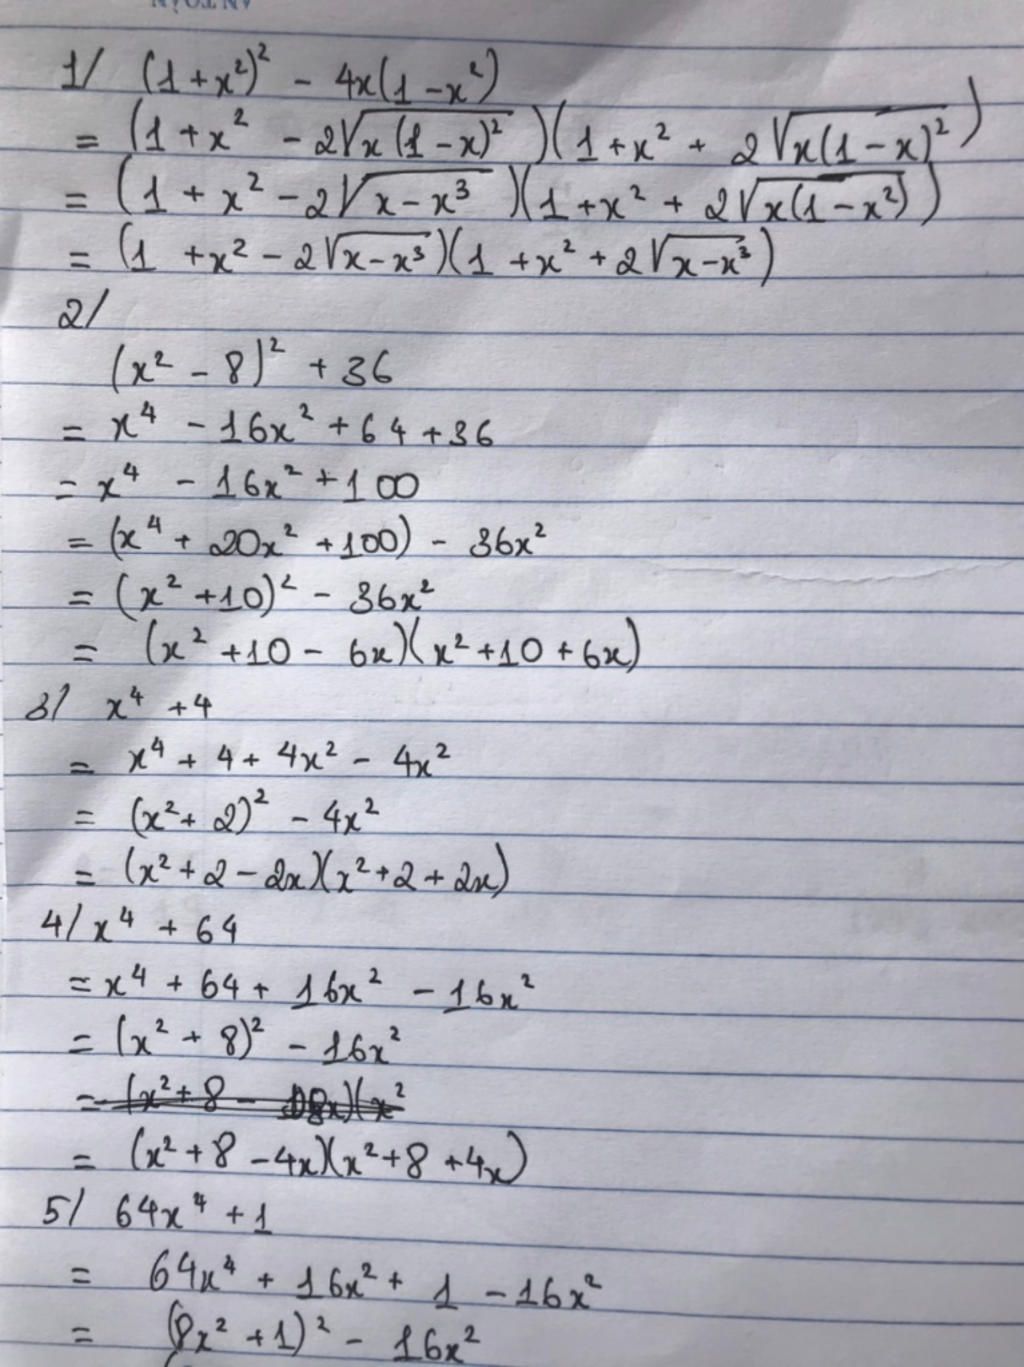 1/ (1+x²)² - 4x(1-x²)
= (1+x² - 2√(x(1-x)²))(1+x² + 2√(x(1-x)²))
= (1+x² - 2√(x-x³))(1+x² + 2√(x(1-x²)))
= (1+x² - 2√(x-x³))(1+x² + 2√(x-x³))
2/
(x² - 8)² + 36
= x⁴ - 16x² + 64 + 36
= x⁴ - 16x² + 100
= (x⁴ + 20x² + 100) - 36x²
= (x² + 10)² - 36x²
= (x² + 10 - 6x)(x² + 10 + 6x)
3/ x⁴ + 4
= x⁴ + 4 + 4x² - 4x²
= (x² + 2)² - 4x²
= (x² + 2 - 2x)(x² + 2 + 2x)
4/ x⁴ + 64
= x⁴ + 64 + 16x² - 16x²
= (x² + 8)² - 16x²
= (x² + 8 - 4x)(x² + 8 + 4x)
5/ 64x⁴ + 1
= 64x⁴ + 16x² + 1 - 16x²
= (8x² + 1)² - 16x²